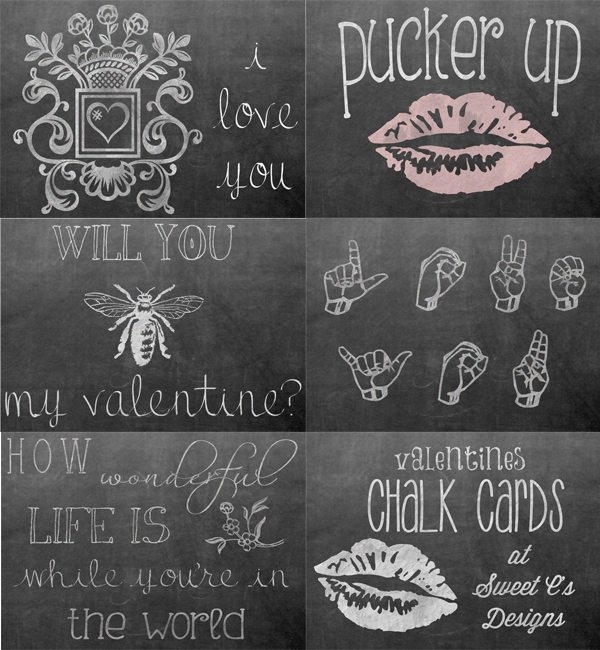 i
love
you
pucker up
WILL YOU
my valentine?
HOW wonderful
LIFE IS
while you're in
the world
valentines
CHALK CARDS
at
Sweet C's
Designs